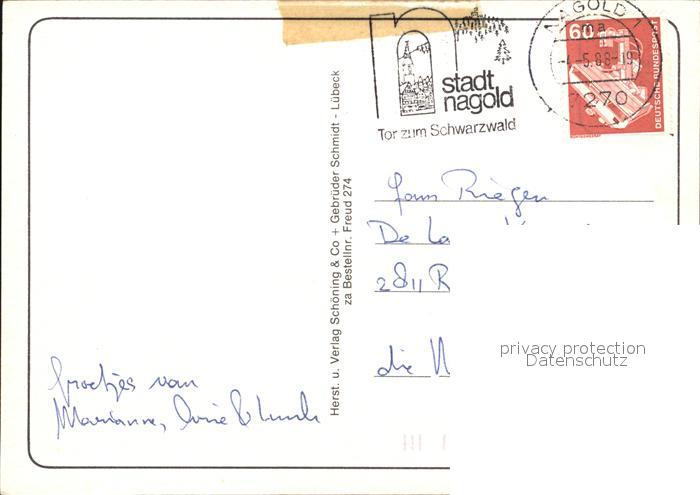 NAGOLD 1
ma
-4.-5.88-19
7270
60
DEUTSCHE BUNDESPOST
stadt
nagold
Tor zum Schwarzwald
Herst. u. Verlag Schöning & Co + Gebrüder Schmidt - Lübeck
za Bestellnr. Freud 274
Riegen
De La
2811 R
die N
privacy protection
Datenschutz
Groetjes van
Marianne,